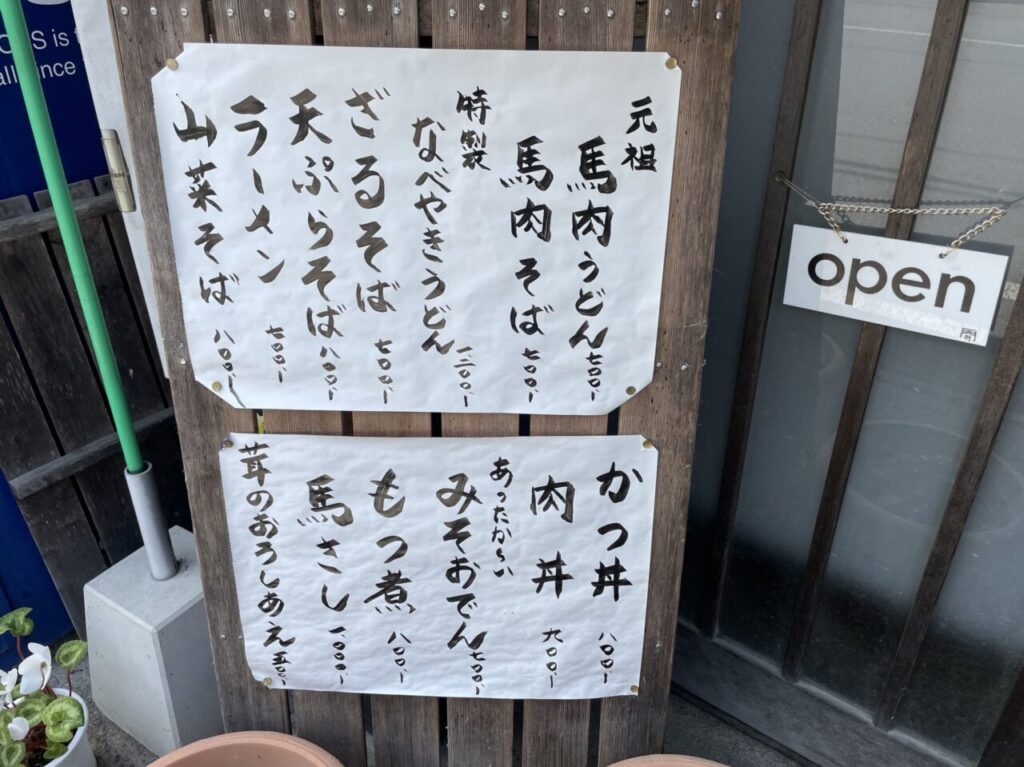 元祖
馬肉うどん 七〇〇、
馬肉そば 七〇〇、
特製
なべやきうどん 一、二〇〇、
ざるそば 七〇〇、
天ぷらそば 八〇〇、
ラーメン 七〇〇、
山菜そば 八〇〇、
かつ丼 八〇〇、
肉丼 九〇〇、
あったか〜い
みそおでん 七〇〇、
もつ煮 八〇〇、
馬さし 一、〇〇〇、
茸のおろしあえ 五〇〇、
open